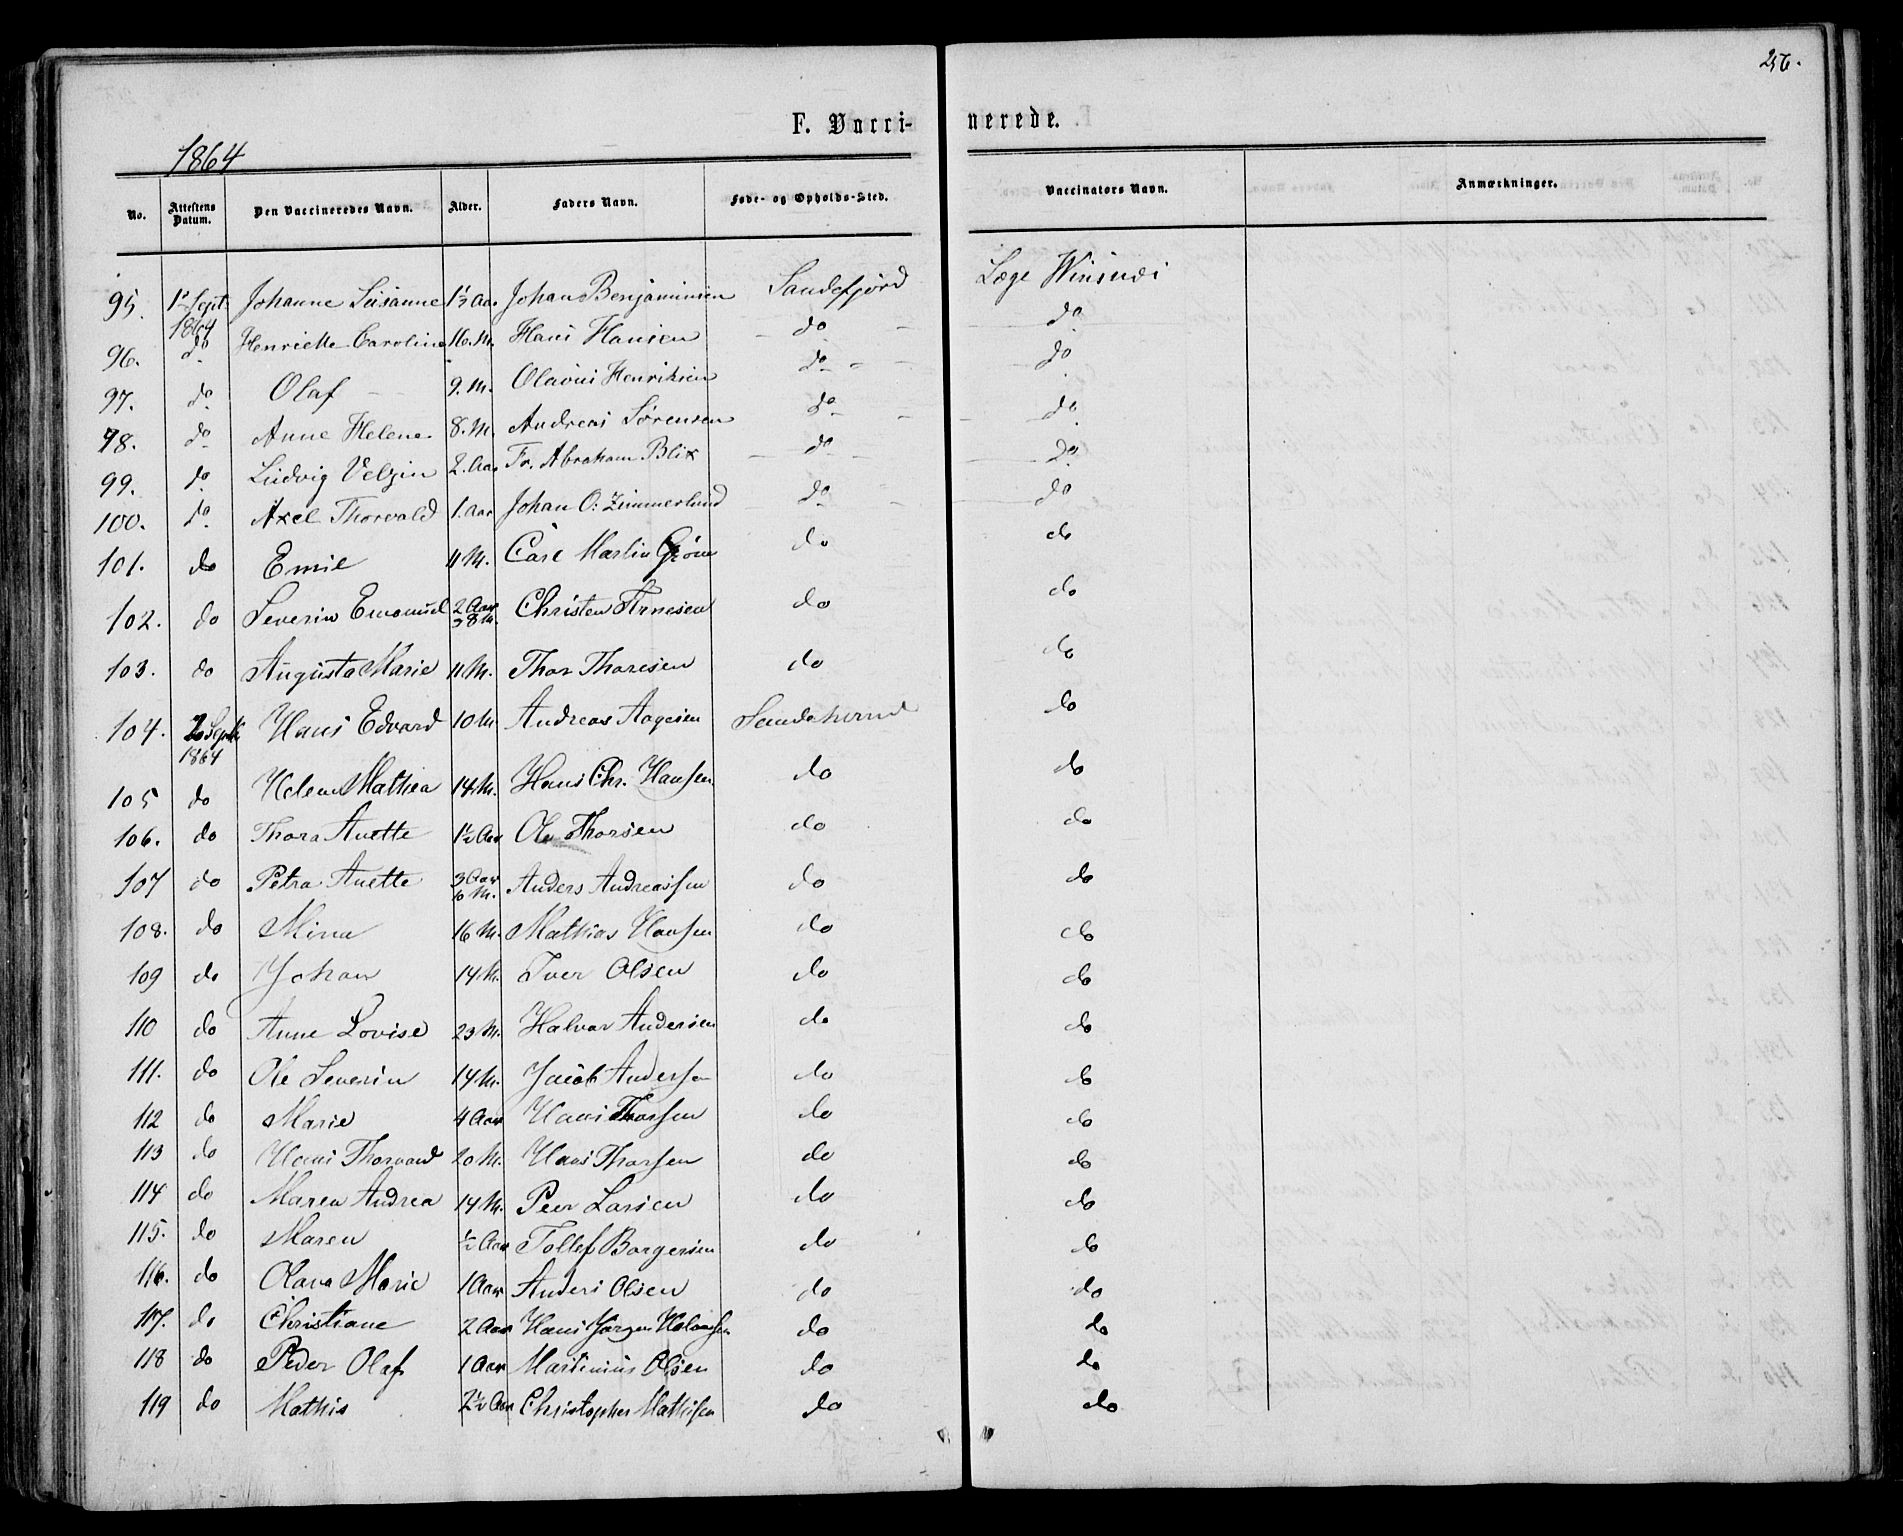 256.
F. Vacci- nerede.
1864
No. Attestens Datum. Den Vaccineredes Navn. Alder. Faders Navn. Føde- og Opholds-Sted. Vaccinators Navn. Anmærkninger.
95. 1 Sept. 1864 Johanne Susanne 1½ Aar Johan Benjaminsen Sandefjord Læge Winsnes
96. do Henriette Caroline 16. M. Hans Hansen do do
97. do Olaf 9. M. Olavus Henriksen do do
98. do Anne Helene 8. M. Andreas Sørensen do do
99. do Ludvig 2. Aar Fr. Abraham Blix do do
100. do Axel Thorvald 1. Aar Johan O. Zimmerlund do do
101. do Emil 11 M. Carl Martin Grøn do do
102. do Severin Emanuel 2 Aar 8 M. Christen Arnesen do do
103. do Augusta Marie 11 M. Thor Thoresen do do
104. 2 Septb 1864 Hans Edvard 10 M Andreas Aagesen Sandeherred do
105 do Helene Mathea 14 M. Hans Chr. Hansen do do
106. do Thora Anette 1½ Aar Ole Thorsen do do
107 do Petra Anette 3 Aar 6 M. Anders Andreassen do do
108. do Mina 16 M. Mathias Hansen do do
109 do Johan 14 M. Iver Olsen do do
110 do Anne Lovise 23 M. Halvor Andersen do do
111. do Ole Severin 14 M. Jacob Andersen do do
112 do Marie 4 Aar Hans Thorsen do do
113 do Hans Thorvard 20 M. Hans Thorsen do do
114 do Maren Andrea 14 M. Peer Larsen do do
115. do Maren ½ Aar Tollef Borgersen do do
116. do Olava Marie 1 Aar Anders Olsen do do
117. do Christiane 2 Aar Hans Jørgen do do
118 do Peder Olaf 1 Aar Martinius Olsen do do
119 do Mathis 2½ Aar Christopher Mathisen do do